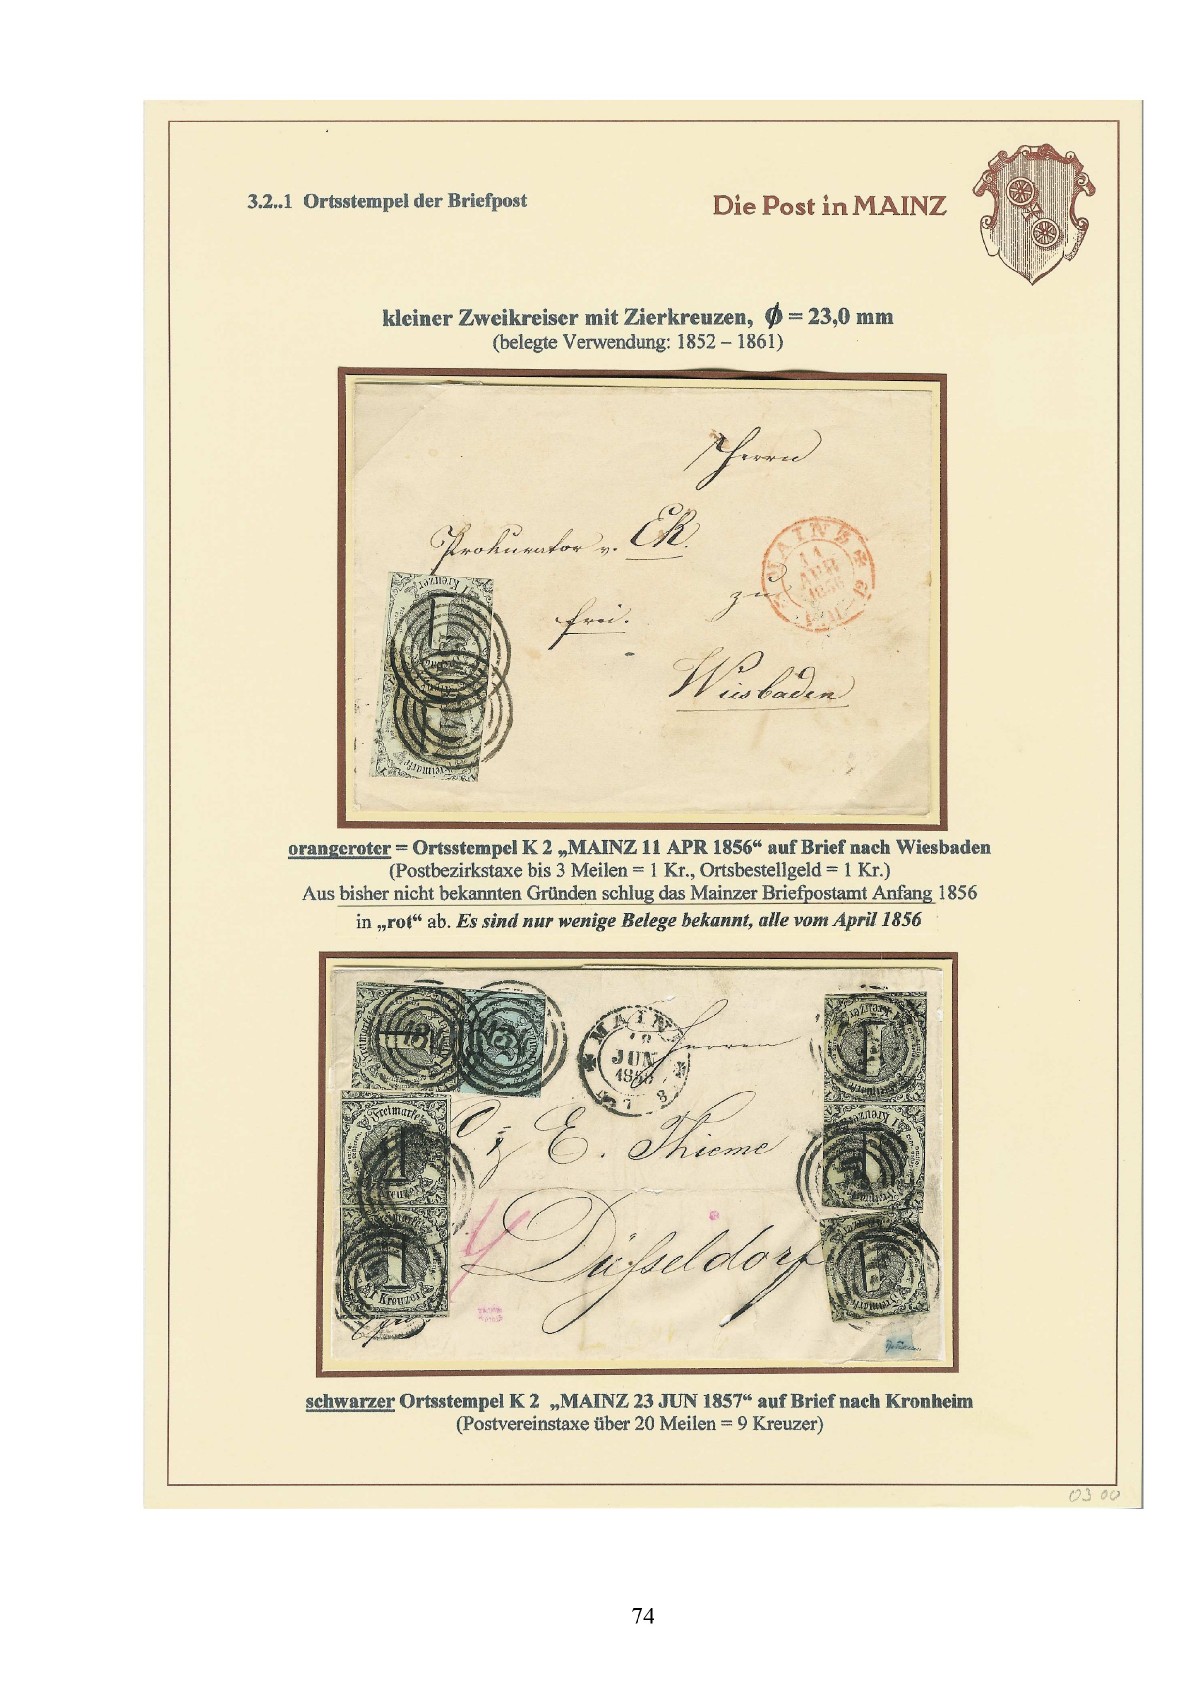 3.2..1 Ortsstempel der Briefpost
Die Post in MAINZ
kleiner Zweikreiser mit Zierkreuzen, Ø = 23,0 mm
(belegte Verwendung: 1852 – 1861)
Herrn
Prokurator v. Eck.
MAINZ
11
APR
1856
zu
frei.
Wiesbaden
1 Kreuzer
Freimarke
orangeroter = Ortsstempel K 2 „MAINZ 11 APR 1856“ auf Brief nach Wiesbaden
(Postbezirkstaxe bis 3 Meilen = 1 Kr., Ortsbestellgeld = 1 Kr.)
Aus bisher nicht bekannten Gründen schlug das Mainzer Briefpostamt Anfang 1856
in „rot“ ab. Es sind nur wenige Belege bekannt, alle vom April 1856
134
134
MAINZ
JUN
Herren
Freimarke
1
Kreuzer
1
1 Kreuzer
E. Thieme
Düsseldorf
1 Kreuzer
schwarzer Ortsstempel K 2 „MAINZ 23 JUN 1857“ auf Brief nach Kronheim
(Postvereinstaxe über 20 Meilen = 9 Kreuzer)
03 00
74